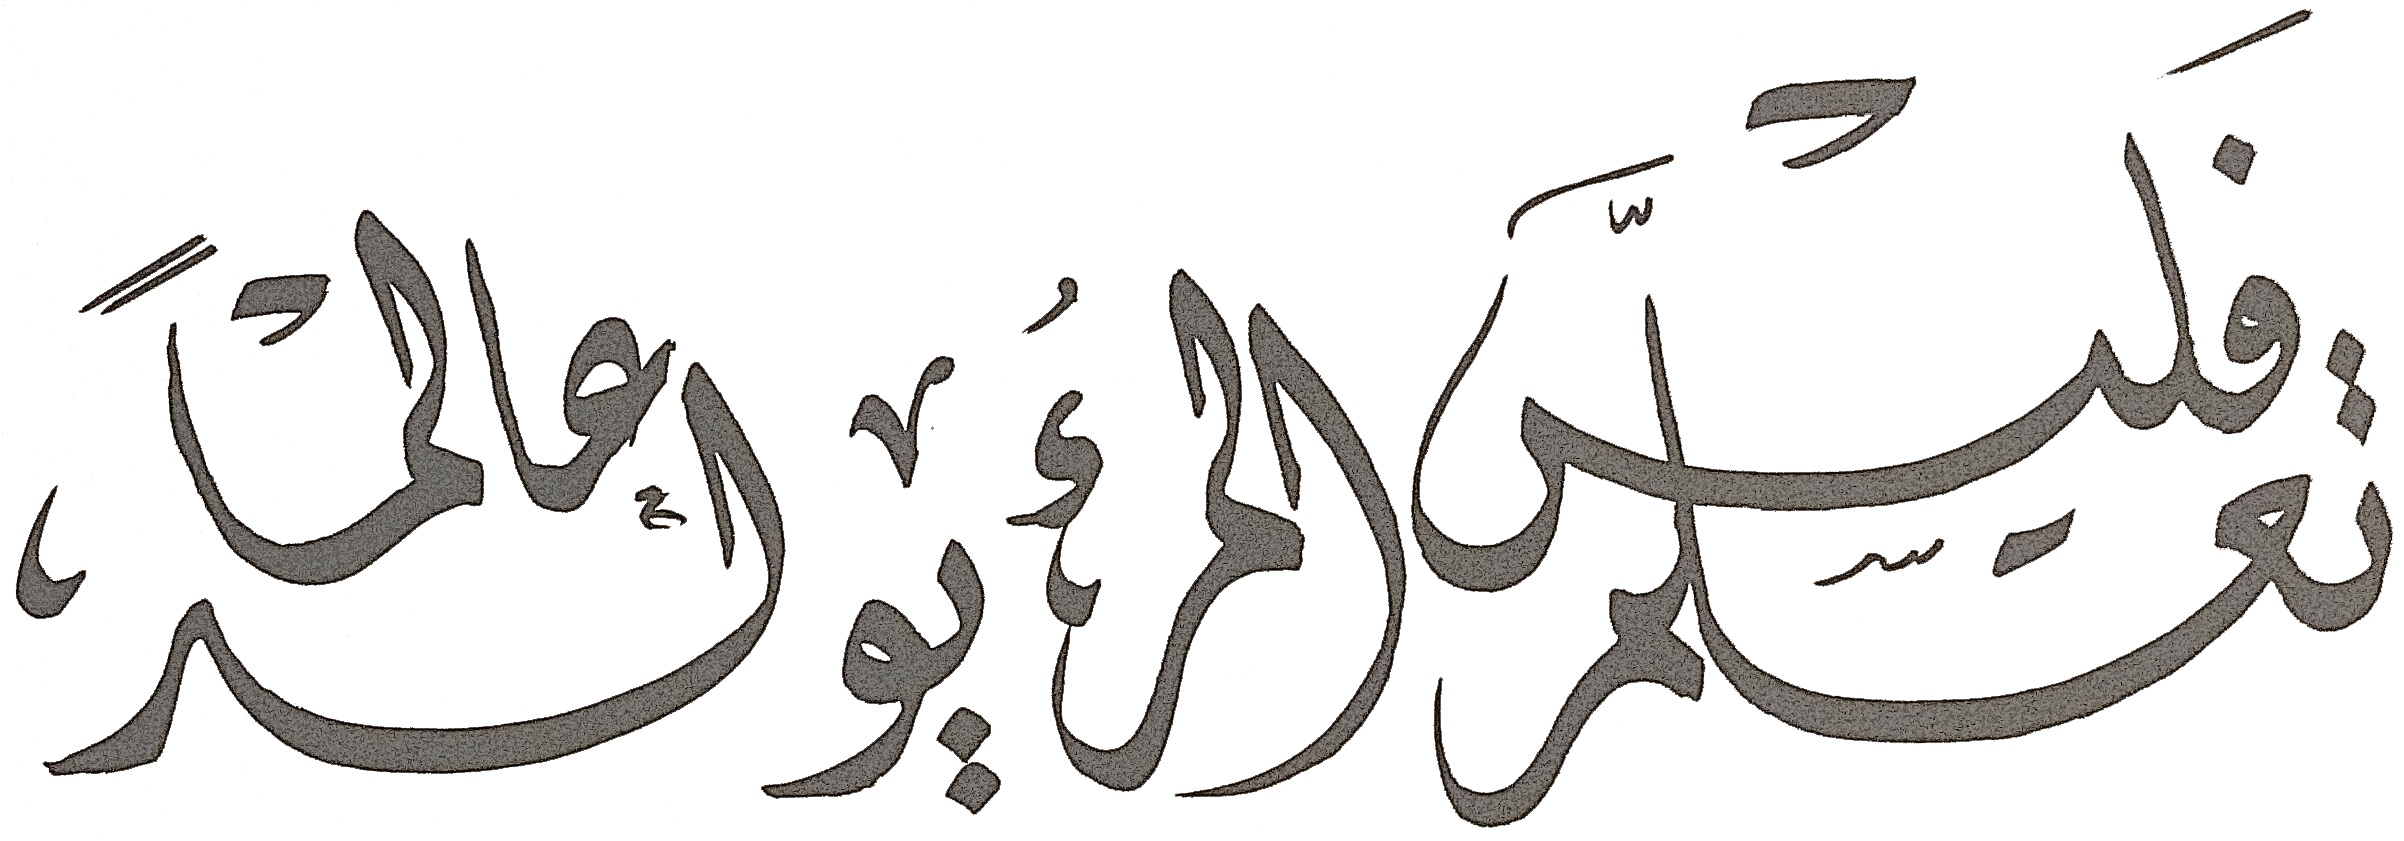 تعلَّم فَليس المرءُ يولد عالماً